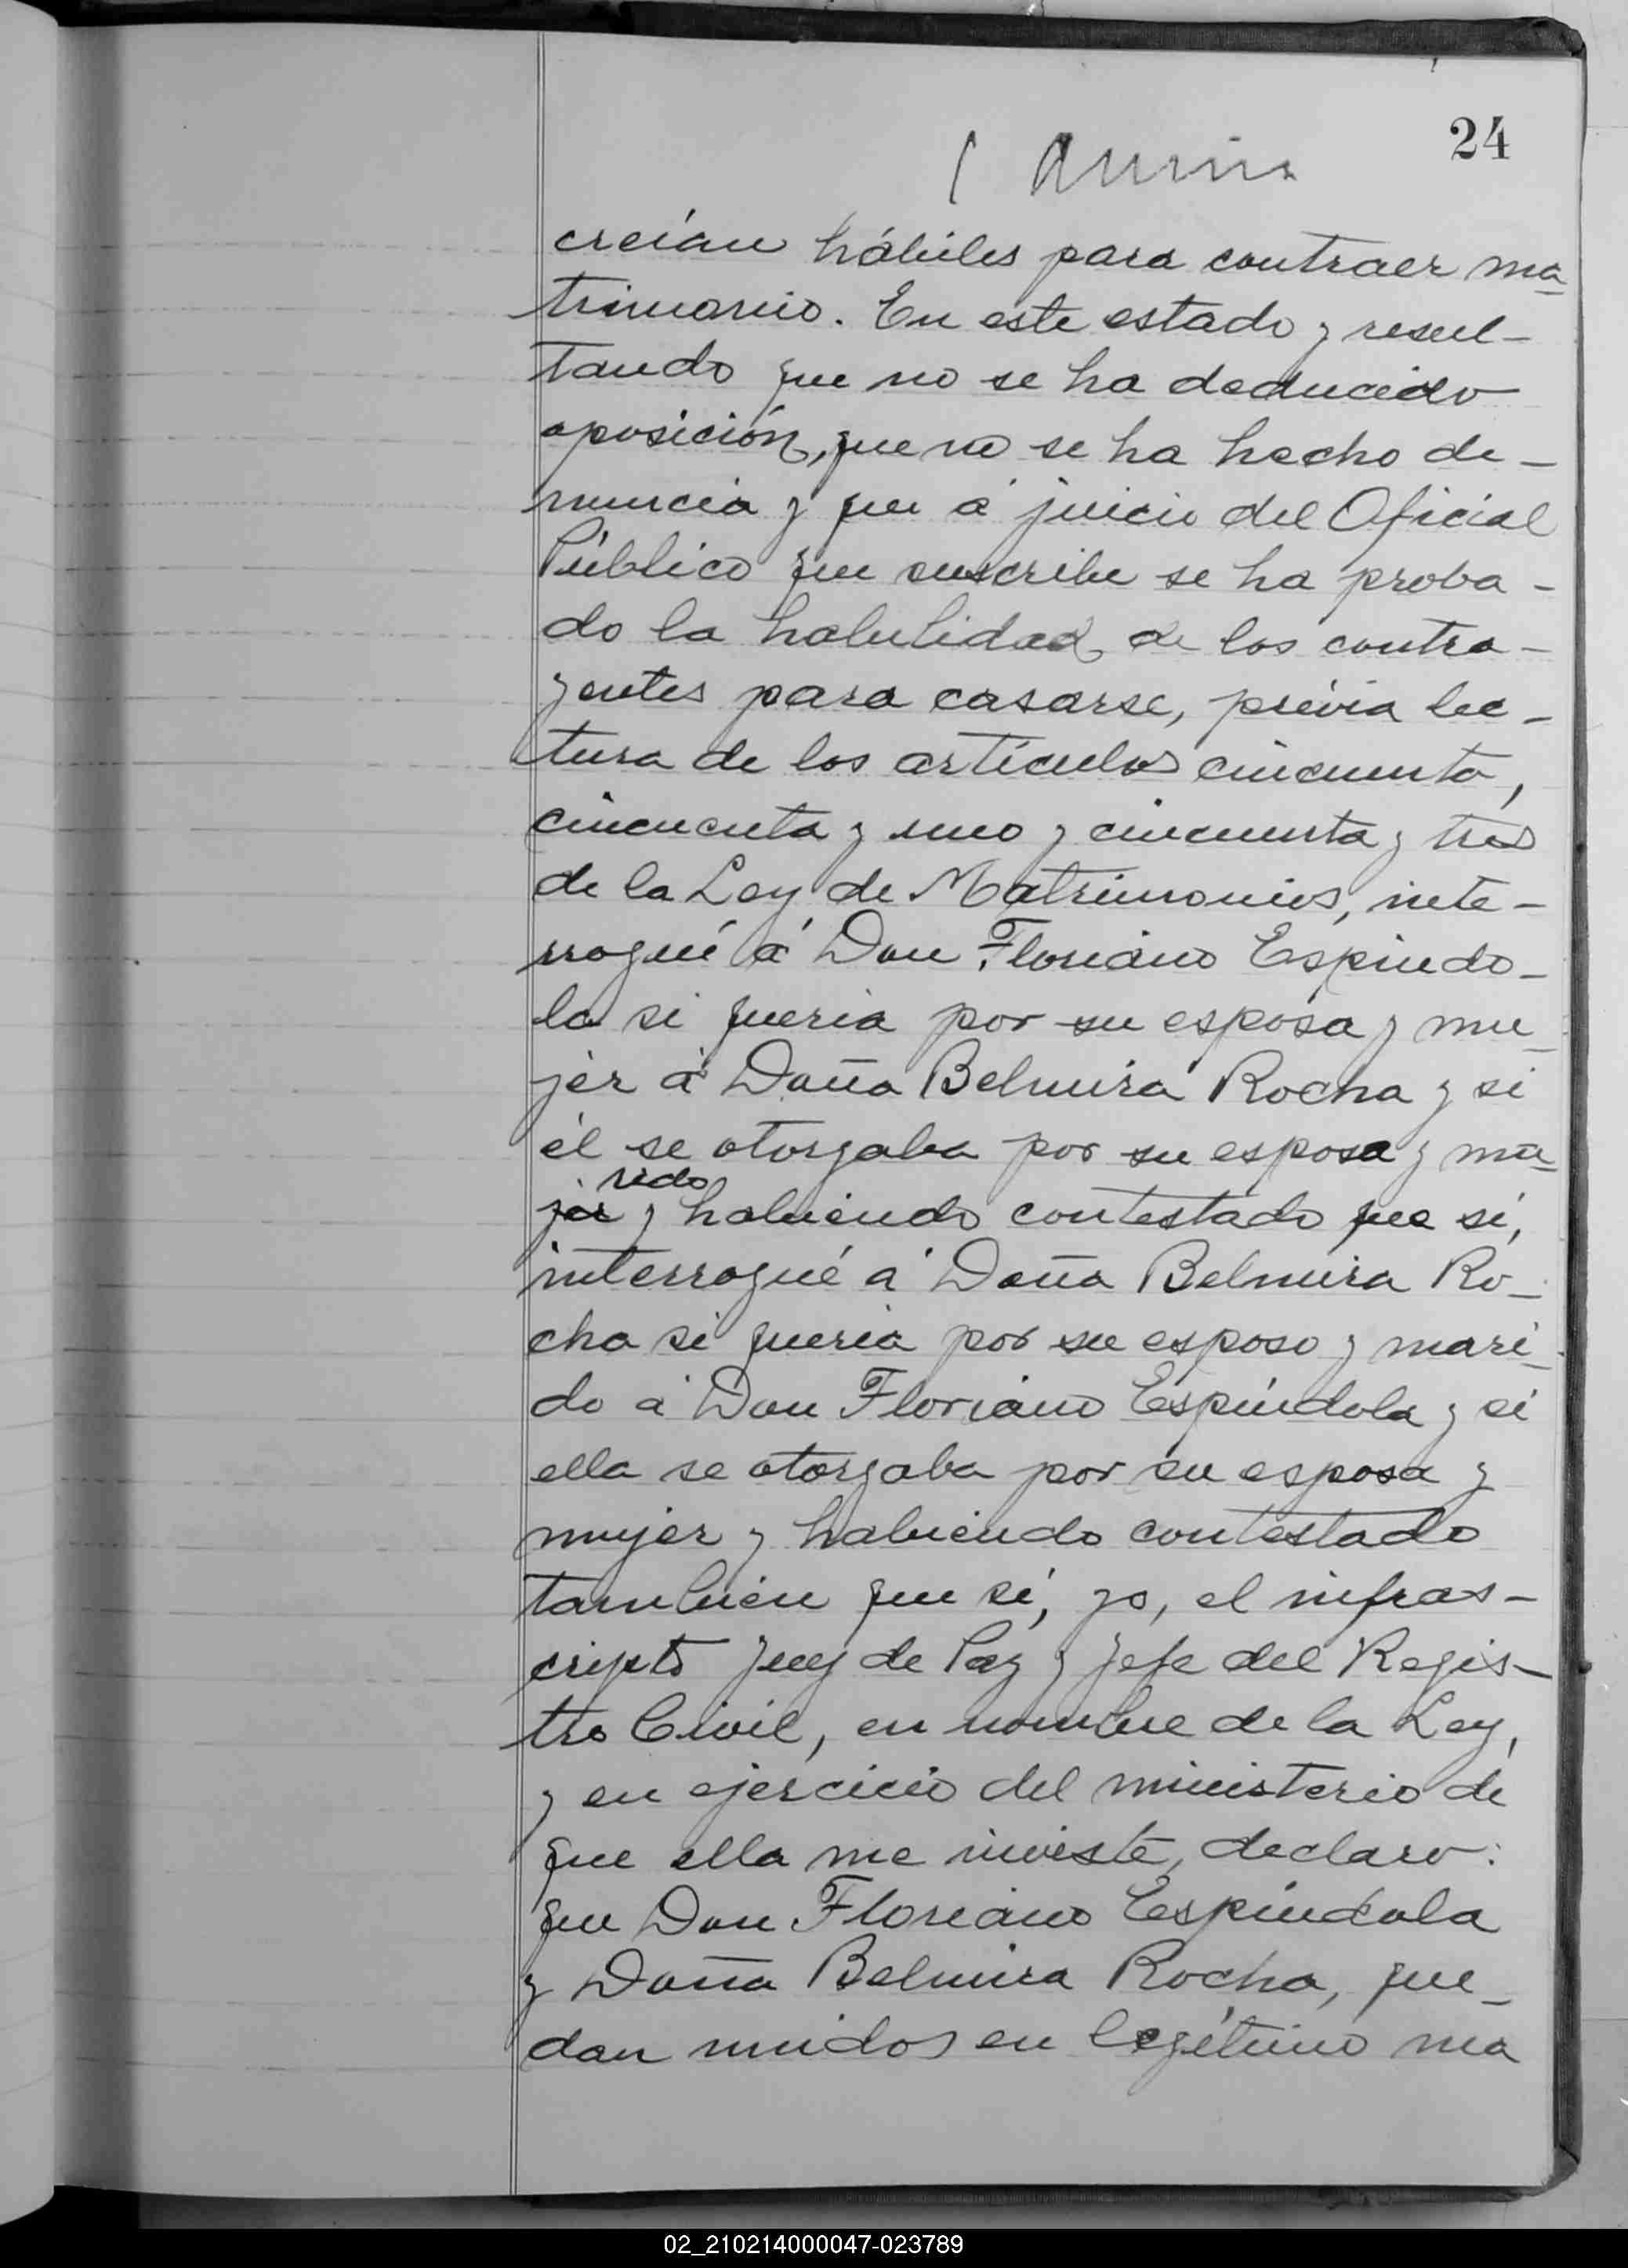 24
creían hábiles para contraer ma-
trimonio. En este estado y resul-
tando que no se ha deducido
oposición, que no se ha hecho de-
nuncia y que á juicio del Oficial
Público que suscribe se ha proba-
do la habilidad de los contra-
yentes para casarse, prévia lec-
tura de los artículos cincuenta,
cincuenta y uno y cincuenta y tres
de la Ley de Matrimonios, inte-
rrogué á Don Floriano Espíndo-
la si queria por su esposa y mu-
jer á Doña Belmira Rocha y si
él se otorgaba por su esposo y ma-
rido
jer y habiendo contestado que sí,
interrogué á Doña Belmira Ro-
cha si queria por su esposo y mari-
do á Don Floriano Espíndola y si
ella se otorgaba por su esposa y
mujer y habiendo contestado
también que sí, yo, el infras-
cripto Juez de Paz y Jefe del Regis-
tro Civil, en nombre de la Ley,
y en ejercicio del ministerio de
que ella me inviste, declaro:
que Don Floriano Espíndola
y Doña Belmira Rocha, que-
dan unidos en legítimo ma
02_210214000047-023789